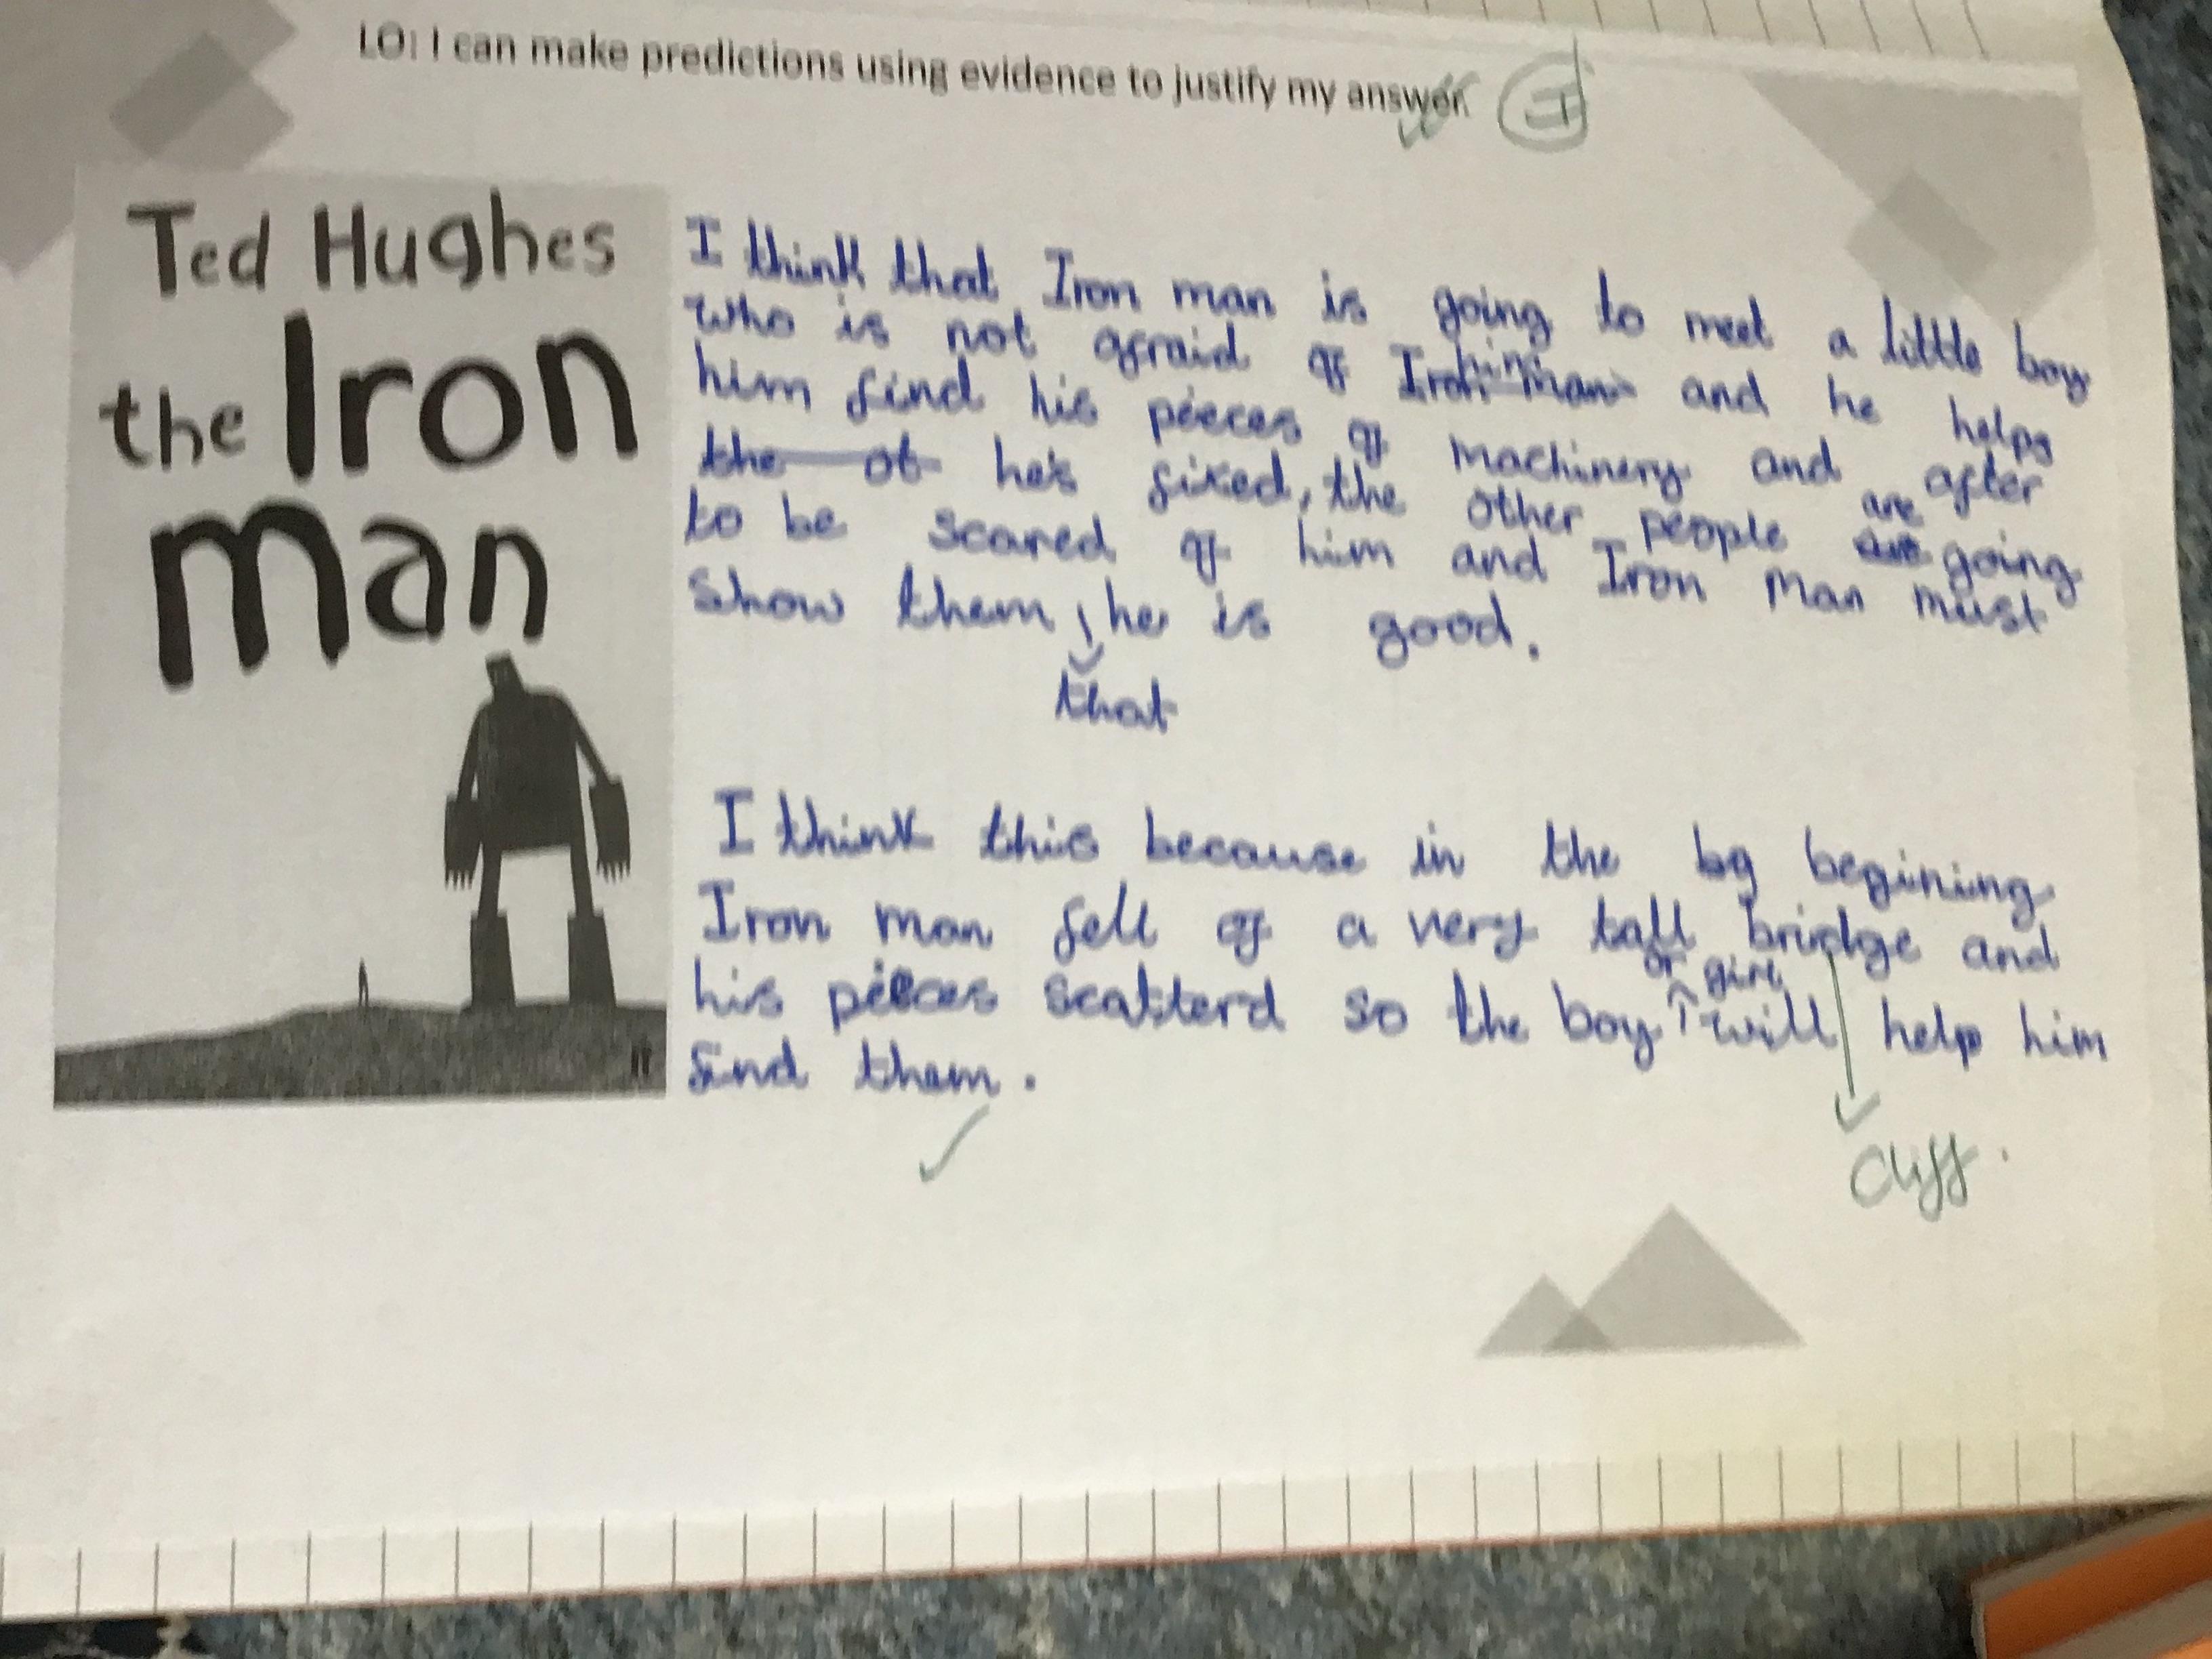 LO: I can make predictions using evidence to justify my answer.
I
Ted Hughes
the Iron
man
I think that Iron man is going to meet a little boy
who is not afraid of Iron man him and he helps
him find his pieces of machinery and after
the ot he's fixed, the other people are going
to be scared of him and Iron Man must
show them that he is good.
I think this because in the bg begining
Iron man fell of a very tall bridge and
his pieces scatterd so the boy or girl will help him
find them.
Cliff.